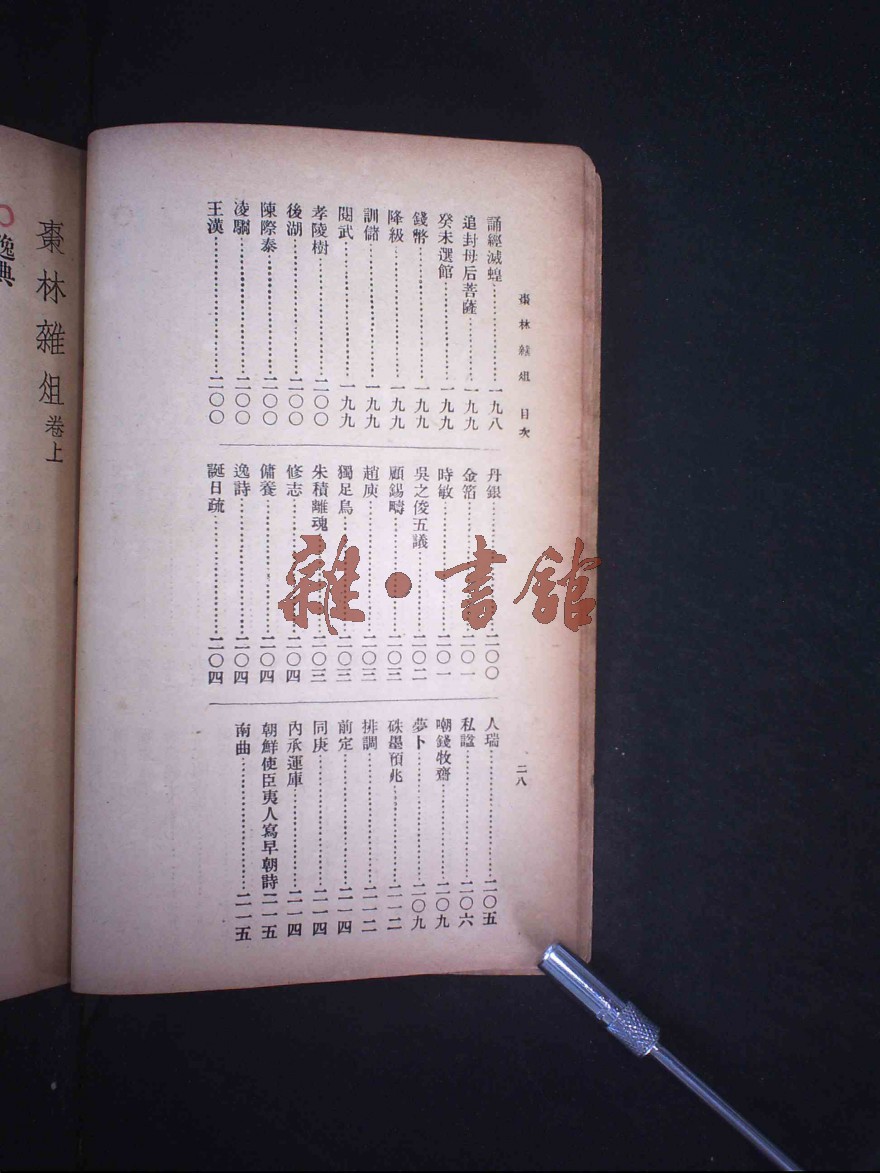 棗林雜俎 目次
誦經滅蝗⋯⋯一九八
追封母后菩薩⋯⋯一九九
癸未選館⋯⋯一九九
錢幣⋯⋯一九九
降級⋯⋯一九九
訓儲⋯⋯一九九
閱武⋯⋯一九九
孝陵樹⋯⋯二〇〇
後湖⋯⋯二〇〇
陳際泰⋯⋯二〇〇
凌駉⋯⋯二〇〇
王漢⋯⋯二〇〇
丹銀⋯⋯二〇〇
金箔⋯⋯二〇一
時敏⋯⋯二〇一
吳之俊五議⋯⋯二〇二
顧錫疇⋯⋯二〇三
趙庾⋯⋯二〇三
獨足鳥⋯⋯二〇三
朱積離魂⋯⋯二〇三
修志⋯⋯二〇四
傭養⋯⋯二〇四
逸詩⋯⋯二〇四
誕日疏⋯⋯二〇四
人瑞⋯⋯二〇五
私諡⋯⋯二〇六
嘲錢牧齋⋯⋯二〇九
夢卜⋯⋯二〇九
硃墨預兆⋯⋯二一二
排調⋯⋯二一二
前定⋯⋯二一四
同庚⋯⋯二一四
內承運庫⋯⋯二一四
朝鮮使臣夷人寫早朝詩二一五
南曲⋯⋯二一五
二八
棗林雜俎 卷上
逸典
雜·書館